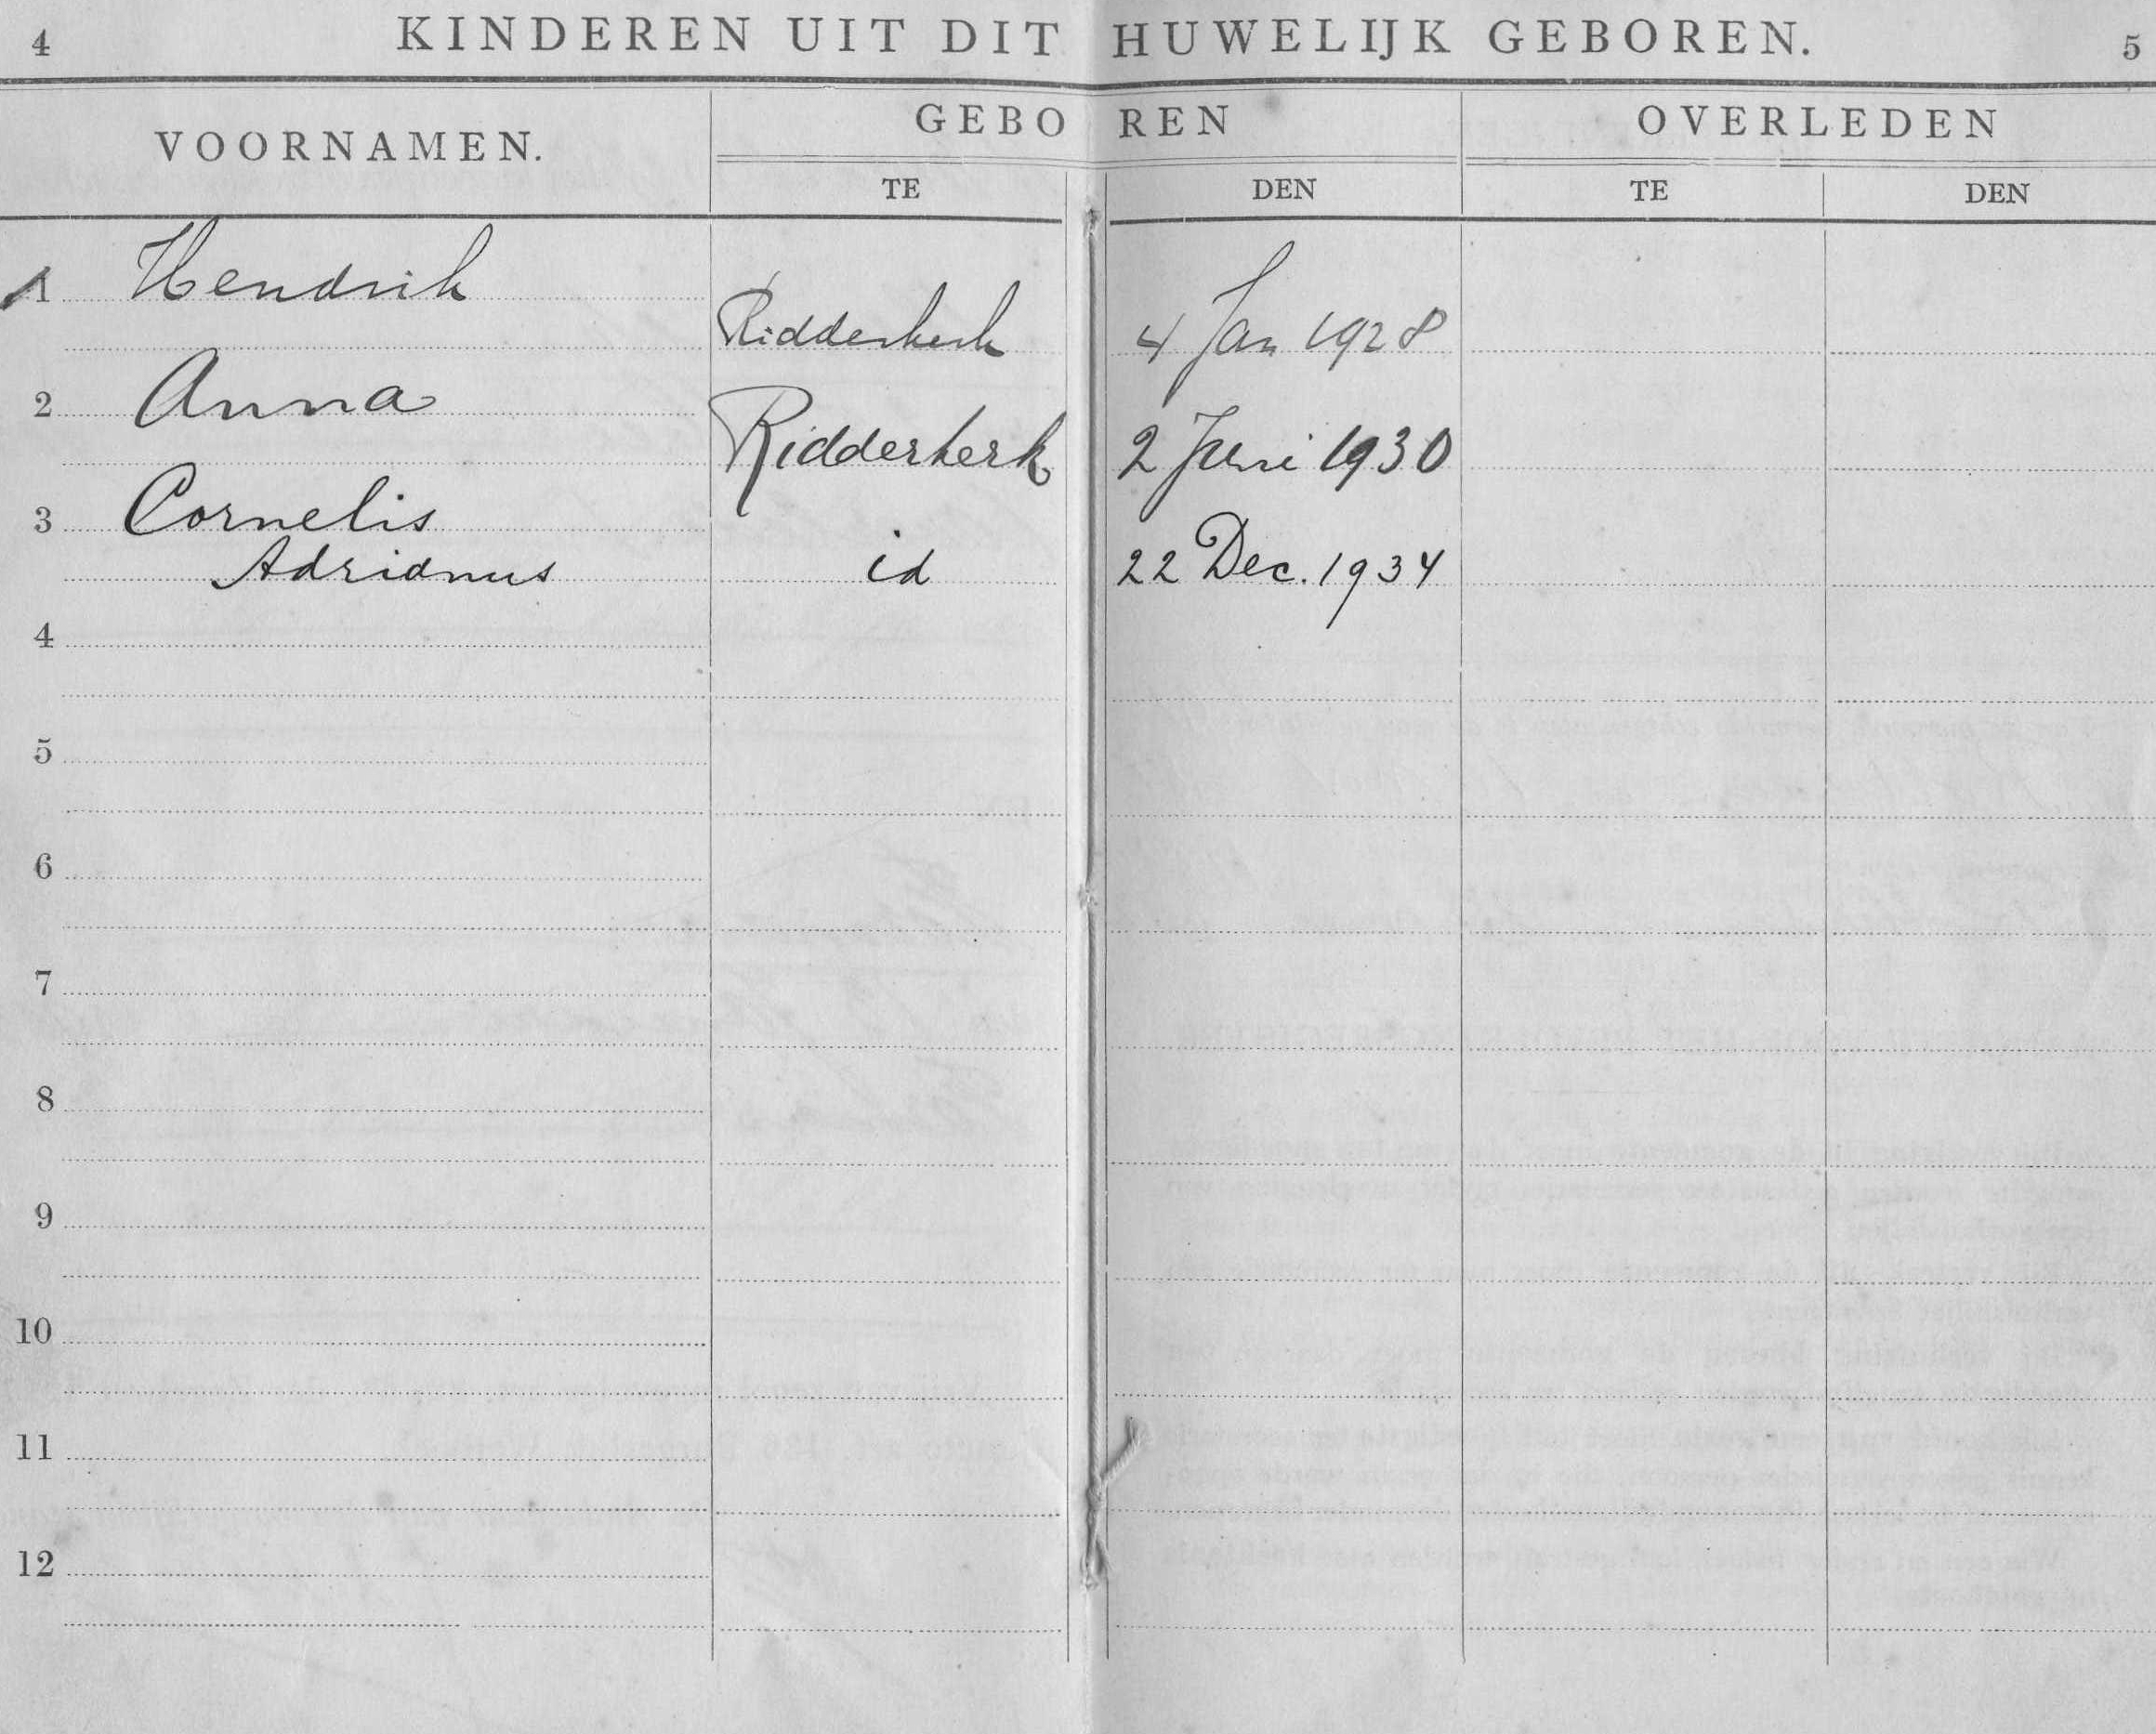 4 KINDEREN UIT DIT HUWELIJK GEBOREN. 5
VOORNAMEN. GEBOREN OVERLEDEN
TE DEN TE DEN
1 Hendrik
Ridderkerk 4 Jan 1928
2 Anna
Ridderkerk 2 Juni 1930
3 Cornelis
Adrianus id 22 Dec. 1934
4
5
6
7
8
9
10
11
12